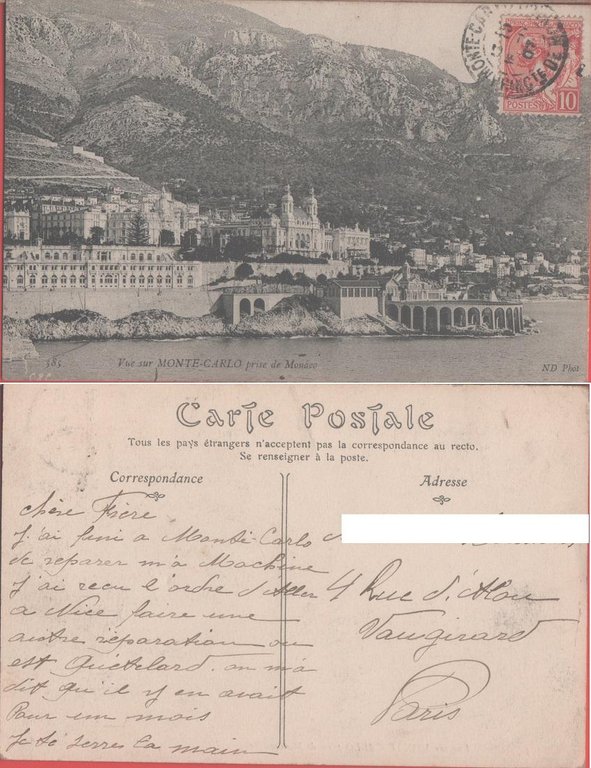 MONTE-CARLO
POSTES 10
585
Vue sur MONTE-CARLO prise de Monaco
ND Phot
Carte Postale
Tous les pays étrangers n'acceptent pas la correspondance au recto.
Se renseigner à la poste.
Correspondance
Adresse
chère Frère
J'ai fini a Monté-Carlo
de reparer m'a Machine
J'ai recu l'ordre d'Aller
a Nice faire une
autre réparation ou
est Quételard. on m'a
dit qu'il y en avait
Pour un mois
Je té serres la main
4 Rue d'
Vaugirard
Paris